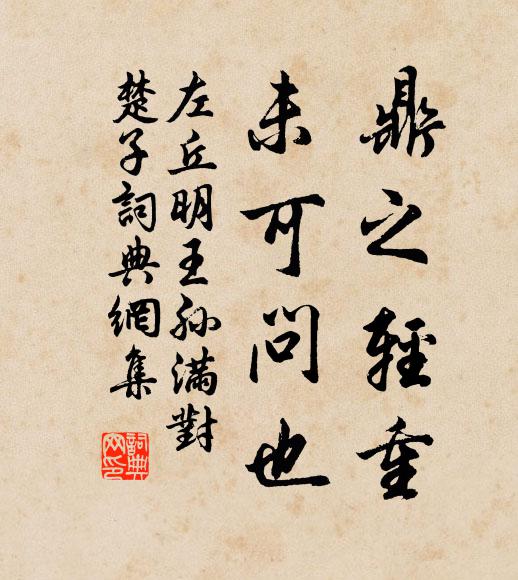 鼎之輕重
未可問也
左丘明王孫滿對
楚子詞典網集
詞典网印